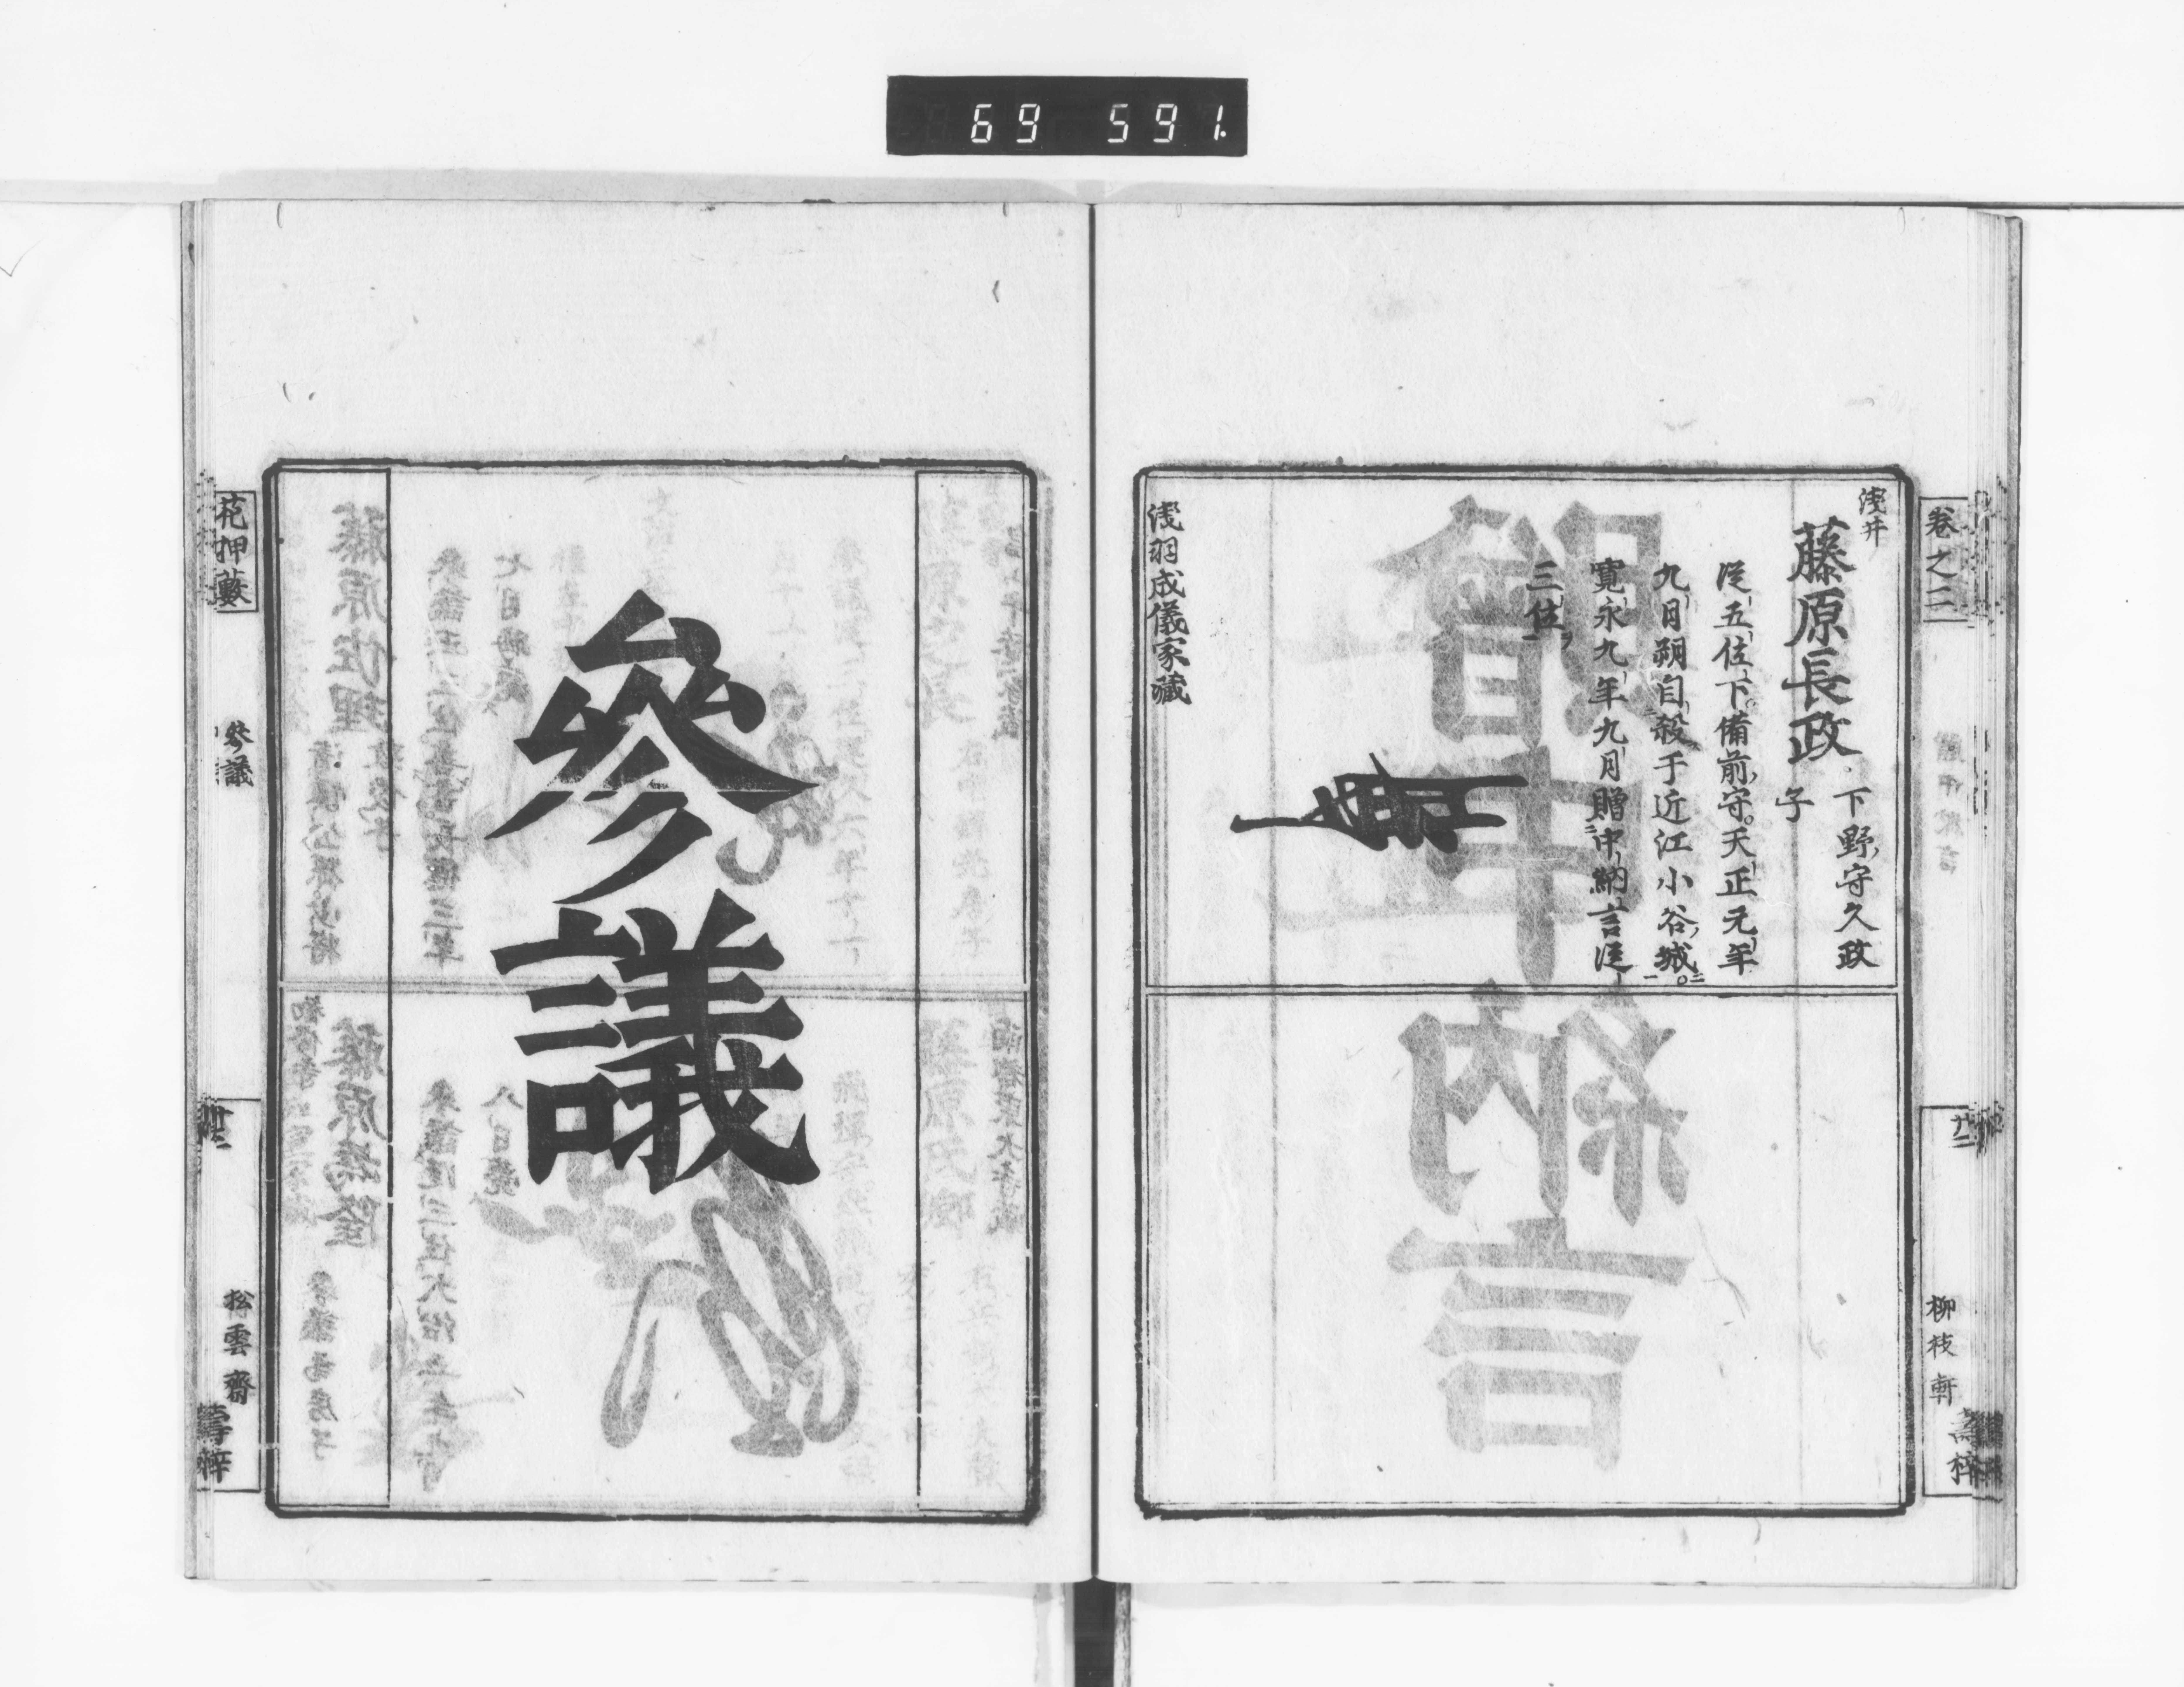 69 591
卷之三
廿二
柳枝軒
淺井
藤原長政
下野守久政
子
從五位下備前守。天正元年
九月朔自殺于近江小谷城。
寛永九年九月贈中納言從
三位
淺羽成儀家藏
參議
花押藪
參議
松雲齋